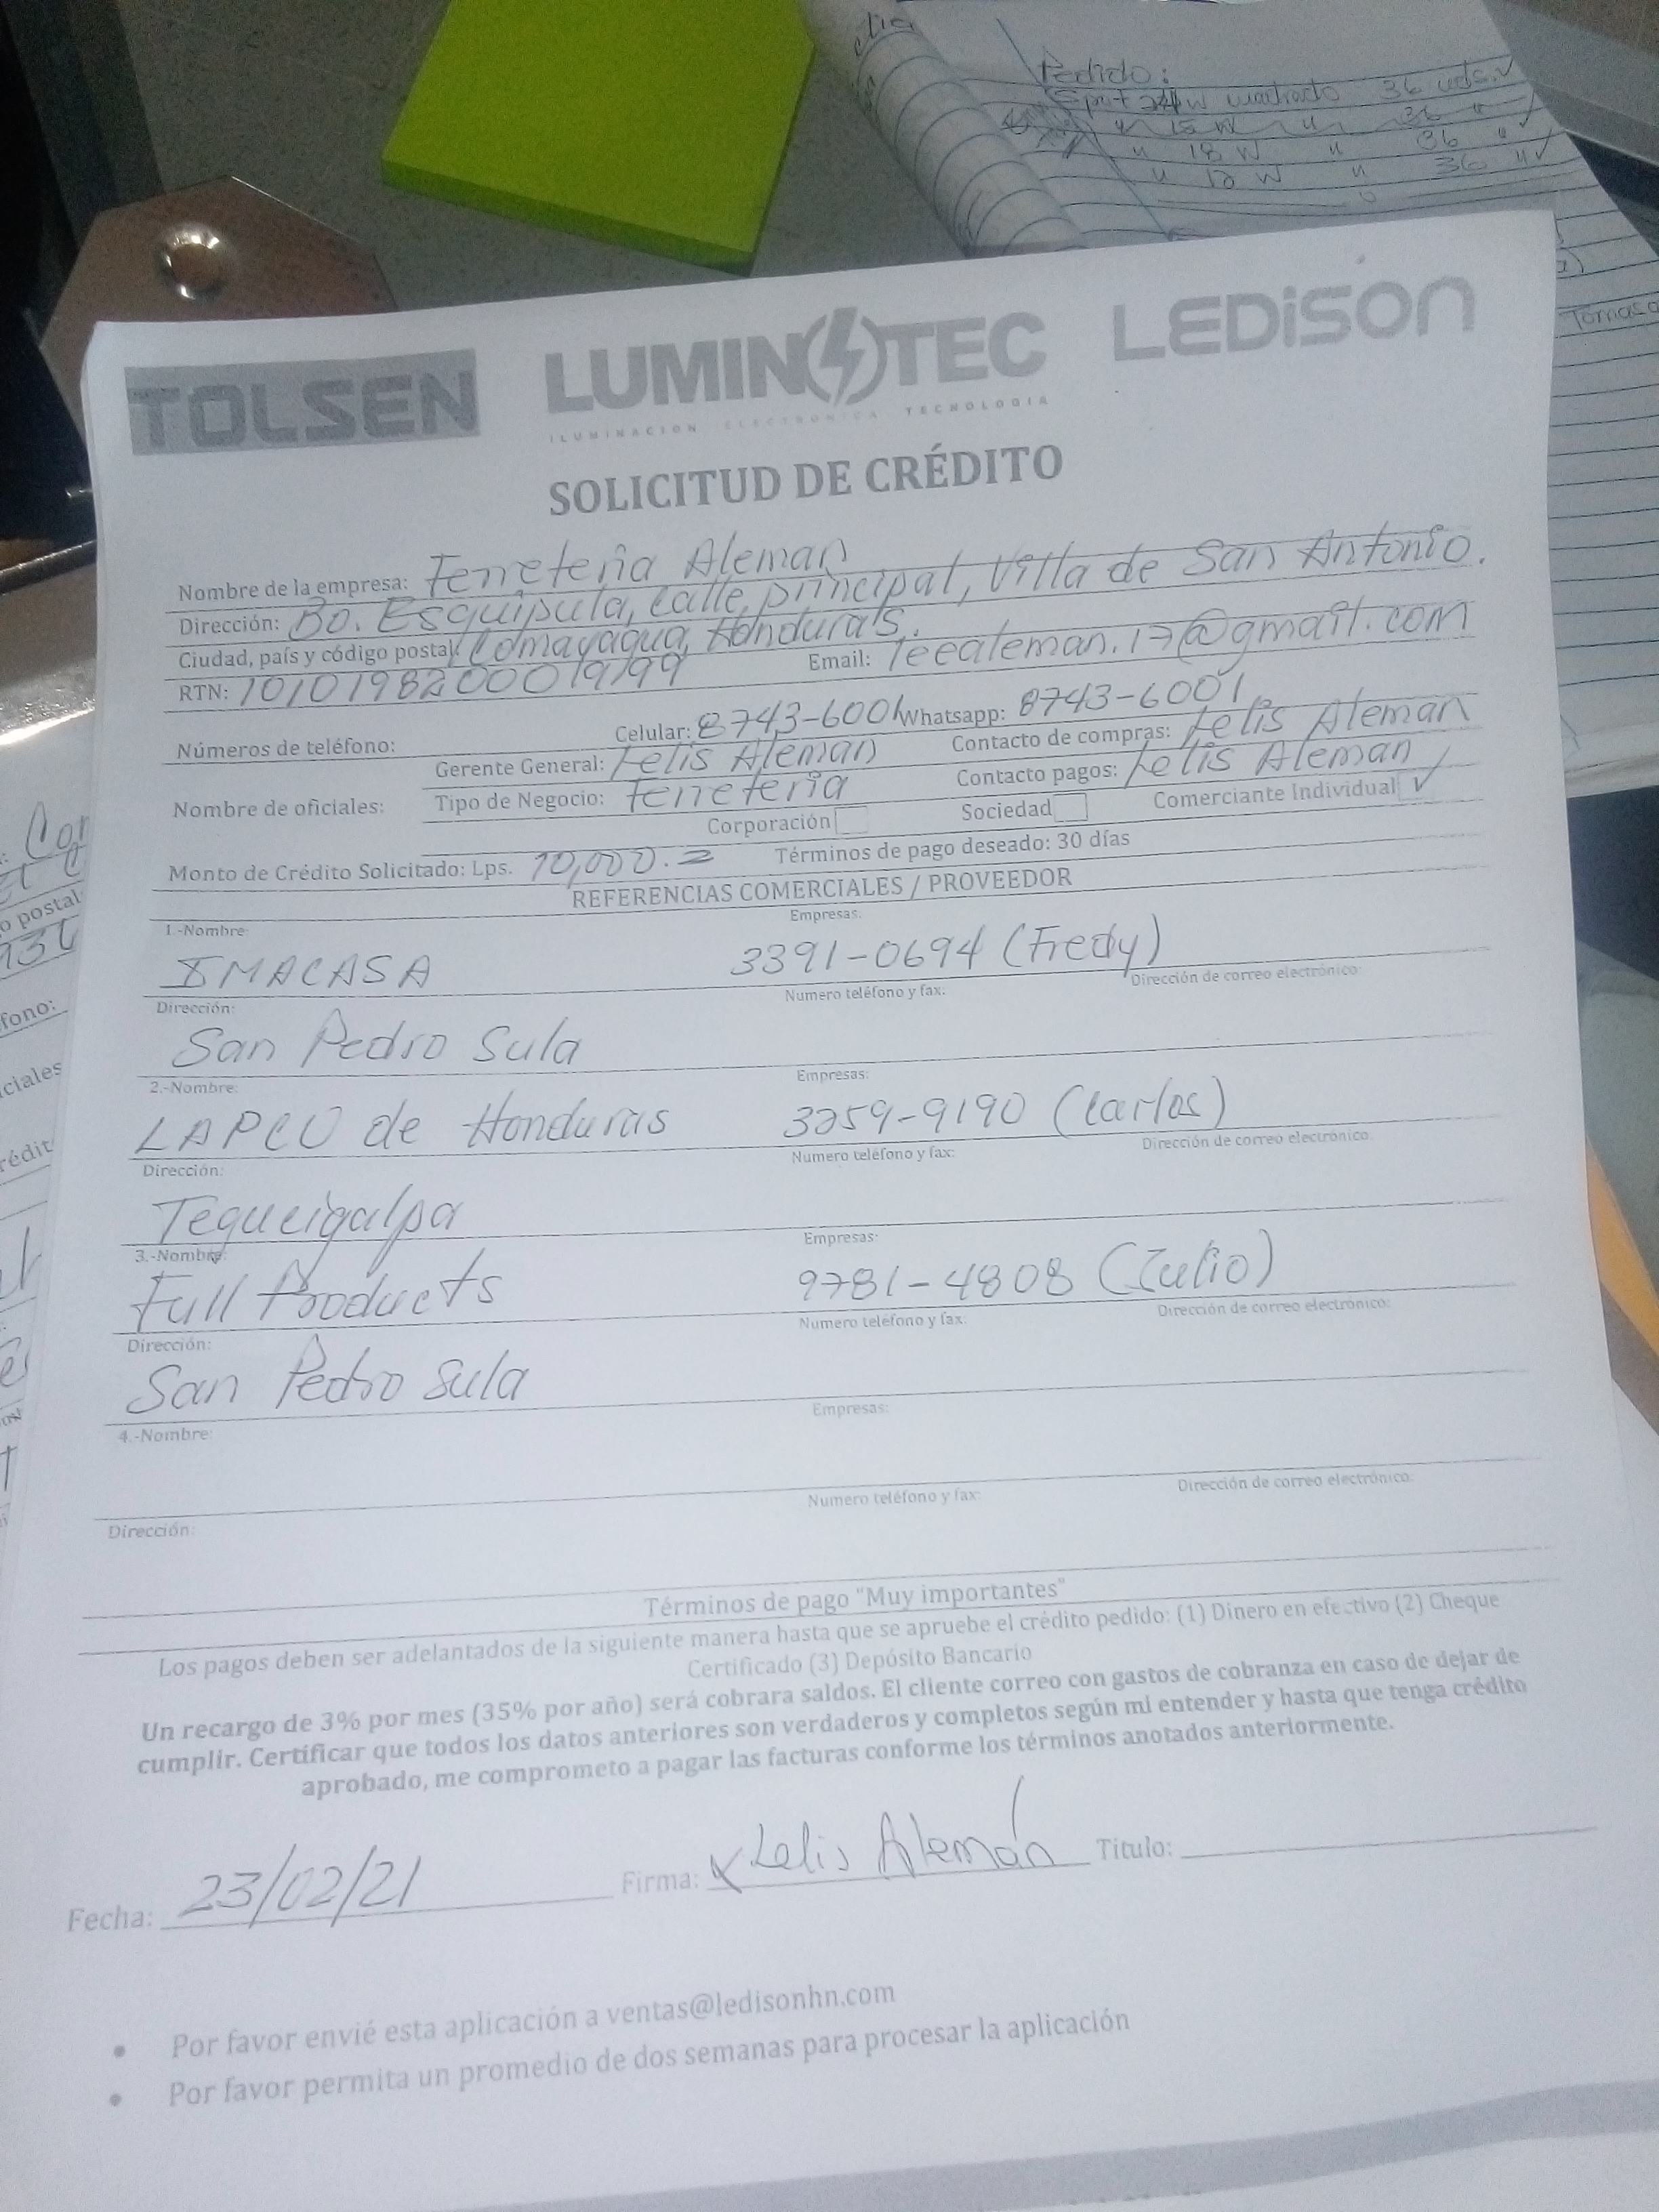 Pedido:
36 uds. ✓
" 15 W " 36 "
" 18 W " 36 " ✓
" 12 W " 36 " ✓
TOLSEN LUMINOTEC LEDiSON
ILUMINACION, ELECTRONICA TECNOLOGIA
SOLICITUD DE CRÉDITO
Nombre de la empresa: Ferreteria Aleman
Dirección: Bo. Esquipula, calle principal, Villa de San Antonio.
Ciudad, país y código postal: Comayagua, Honduras.
RTN: Email:
Números de teléfono: Celular: 8743-6001 Whatsapp: 8743-6001
Gerente General: Lelis Aleman Contacto de compras: Lelis Aleman
Nombre de oficiales: Tipo de Negocio: Ferreteria Contacto pagos: Lelis Aleman
Corporación Sociedad Comerciante Individual ✓
Monto de Crédito Solicitado: Lps. 10,000. Términos de pago deseado: 30 días
REFERENCIAS COMERCIALES / PROVEEDOR
1.-Nombre: Empresas:
IMACASA 3391-0694 (Fredy)
Dirección: Numero teléfono y fax: Dirección de correo electrónico:
San Pedro Sula
2.-Nombre: Empresas:
LAPCO de Honduras 3259-9190 (Carlos)
Dirección: Numero teléfono y fax: Dirección de correo electrónico:
Tegucigalpa
3.-Nombre: Empresas:
Full Products 9781-4808 (Julio)
Dirección: Numero teléfono y fax: Dirección de correo electrónico:
San Pedro Sula
4.-Nombre: Empresas:
Dirección: Numero teléfono y fax: Dirección de correo electrónico:
Términos de pago "Muy importantes"
Los pagos deben ser adelantados de la siguiente manera hasta que se apruebe el crédito pedido: (1) Dinero en efectivo (2) Cheque
Certificado (3) Depósito Bancario
Un recargo de 3% por mes (35% por año) será cobrara saldos. El cliente correo con gastos de cobranza en caso de dejar de
cumplir. Certificar que todos los datos anteriores son verdaderos y completos según mi entender y hasta que tenga crédito
aprobado, me comprometo a pagar las facturas conforme los términos anotados anteriormente.
Fecha: 23/02/21 Firma: x Lelis Alemán Titulo:
• Por favor envié esta aplicación a ventas@ledisonhn.com
• Por favor permita un promedio de dos semanas para procesar la aplicación